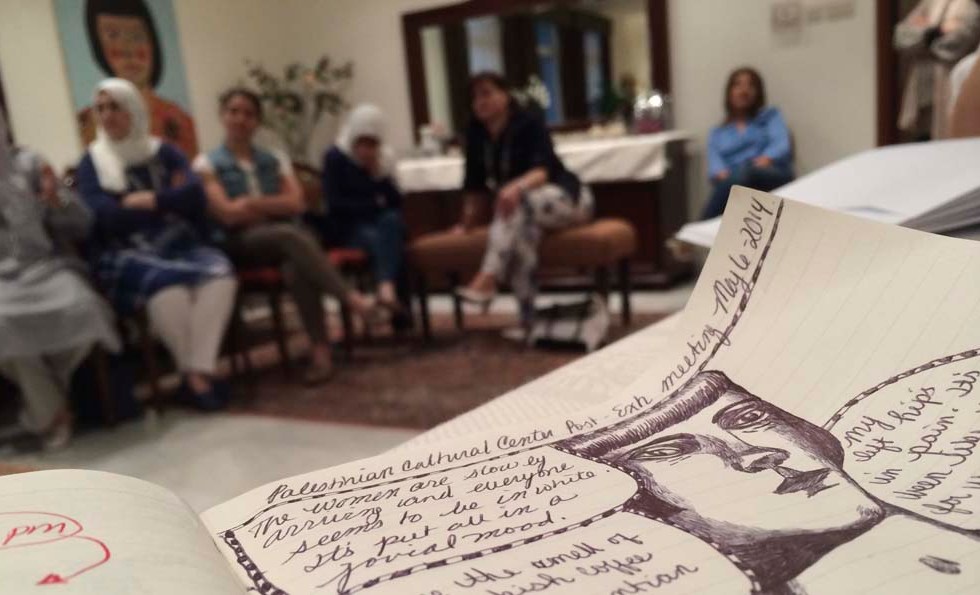 Palestinian Cultural Center Post-Exh meeting May 6-2014.
The women are slowly
arriving and everyone
seems to be in white
It's put all in a
jovial mood.
the smell of
coffee
my
left hip's
in pain. It's
been two
for